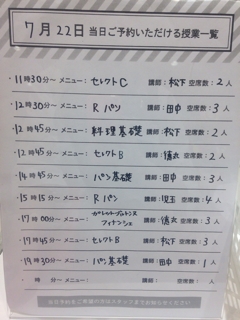 7月22日 当日ご予約いただける授業一覧
・11時30分〜 メニュー: セレクトC 講師:松下 空席数: 2人
・12時30分〜 メニュー: R パン 講師:田中 空席数: 3人
・12時45分〜 メニュー: 料理基礎 講師:松下 空席数: 2人
・12時45分〜 メニュー: セレクトB 講師: 空席数: 2人
・14時45分〜 メニュー: パン基礎 講師:田中 空席数: 3人
・15時15分〜 メニュー: R パン 講師:児玉 空席数: 4人
・17時00分〜 メニュー: フィナンシェ 講師: 空席数: 3人
・19時45分〜 メニュー: セレクトB 講師:松下 空席数: 3人
・19時30分〜 メニュー: パン基礎 講師:田中 空席数: 1人
・ 時 分〜 メニュー: 講師: 空席数: 人
当日予約をご希望の方はスタッフまでお知らせください